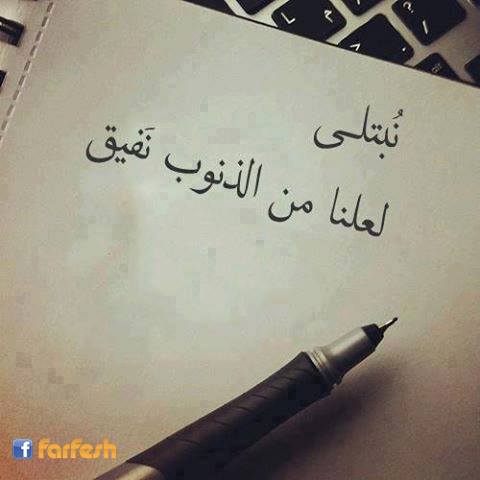 نُبتلى
لعلنا من الذنوب نَفيق
f farfesh